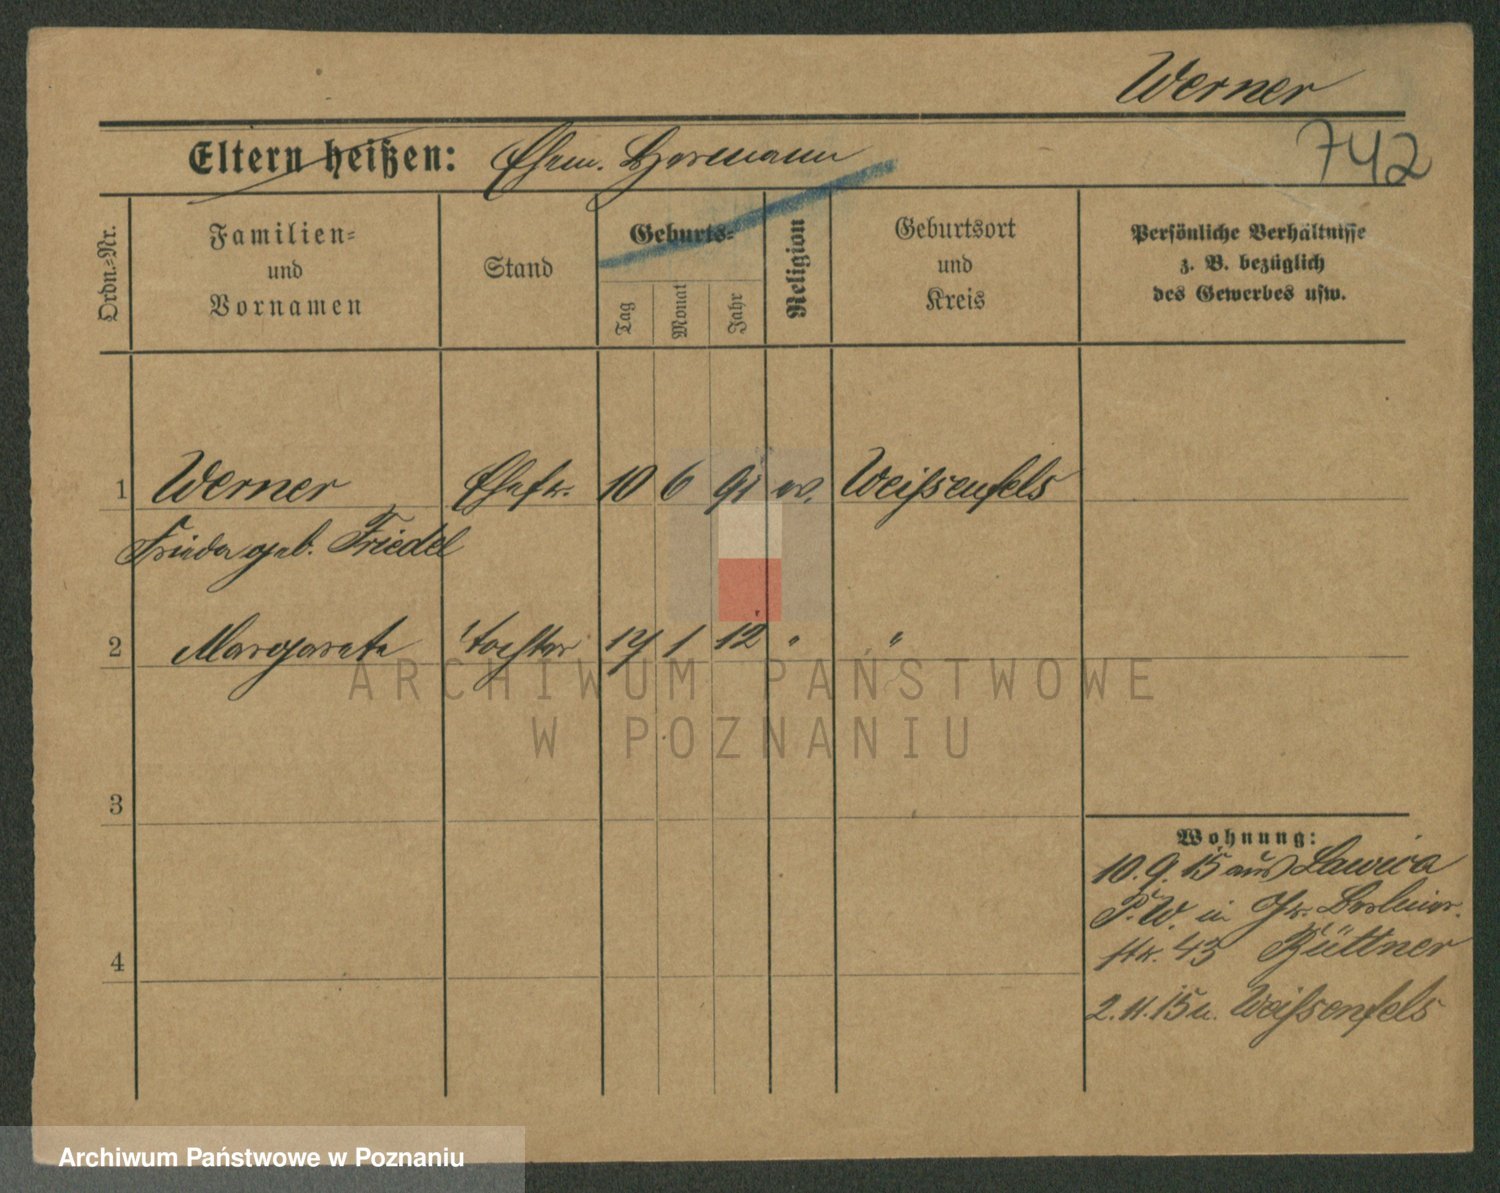 Werner
742
Eltern heißen: Ehem. Hermann
Ordn.-Nr.
Familien-
und
Vornamen
Stand
Geburts-
Tag
Monat
Jahr
Religion
Geburtsort
und
Kreis
Persönliche Verhältnisse
z. B. bezüglich
des Gewerbes usw.
1 Werner Ehefr. 10 6 91 ev. Weißenfels
Frieda geb. Friedel
2 Margarete Tochter 14 1 12 " "
ARCHIWUM PAŃSTWOWE
W POZNANIU
3
4
Wohnung:
10.9.15 aus Lawica
P.W. in Gr. Berliner-
str. 43 Büttner
2.11.15 n. Weißenfels
Archiwum Państwowe w Poznaniu